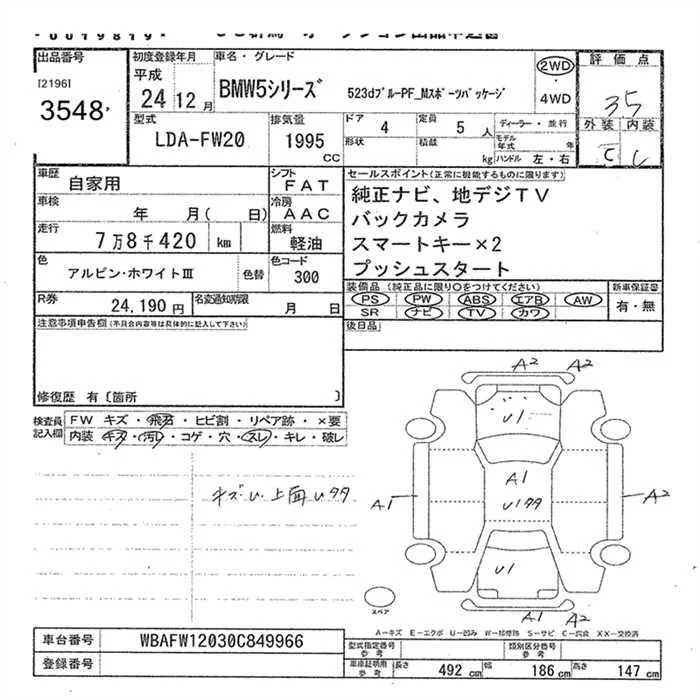 出品番号
[2196]
3548
初度登録年月
平成
24年12月
車名・グレード
BMW5シリーズ
523dブルーPF_Mスポーツパッケージ
2WD
4WD
評価点
3.5
外装 内装
C C
型式
LDA-FW20
排気量
1995
CC
ドア
4
定員
5人
形状
積載
kg
ディーラー・並行
モデル年式 年
ハンドル 左・右
車歴
自家用
シフト
FAT
車検
年 月( 日)
冷房
AAC
走行
7万8千420 km
燃料
軽油
色
アルピン・ホワイトIII
色替
色コード
300
R券
24,190円
名変通知期限
月 日
セールスポイント(正常に機能するものに限ります)
純正ナビ、地デジTV
バックカメラ
スマートキー×2
プッシュスタート
装備品(純正品に限り○をつけてください)
PS PW ABS エアB AW
SR ナビ TV カワ
新車保証書
有・無
後日品
注意事項申告欄(不具合内容等は具体的に記入して下さい)
修復歴 有〔箇所 〕
検査員記入欄
FW キズ・飛石・ヒビ割・リペア跡・×要
内装 キズ・汚れ・コゲ・穴・スレ・キレ・破レ
キズU. 上面Uタタ
A2 A2
U1
A1
U1タタ
A1
A2
U1
A1 A2
スペア
A-キズ E-エクボ U-凹み W-補修跡 S-サビ C-腐食 XX-交換済
車台番号
WBAFW12030C849966
登録番号
型式指定番号
参考
類別区分番号
参考
車庫証明用
参考
長さ 492 cm 幅 186 cm 高さ 147 cm